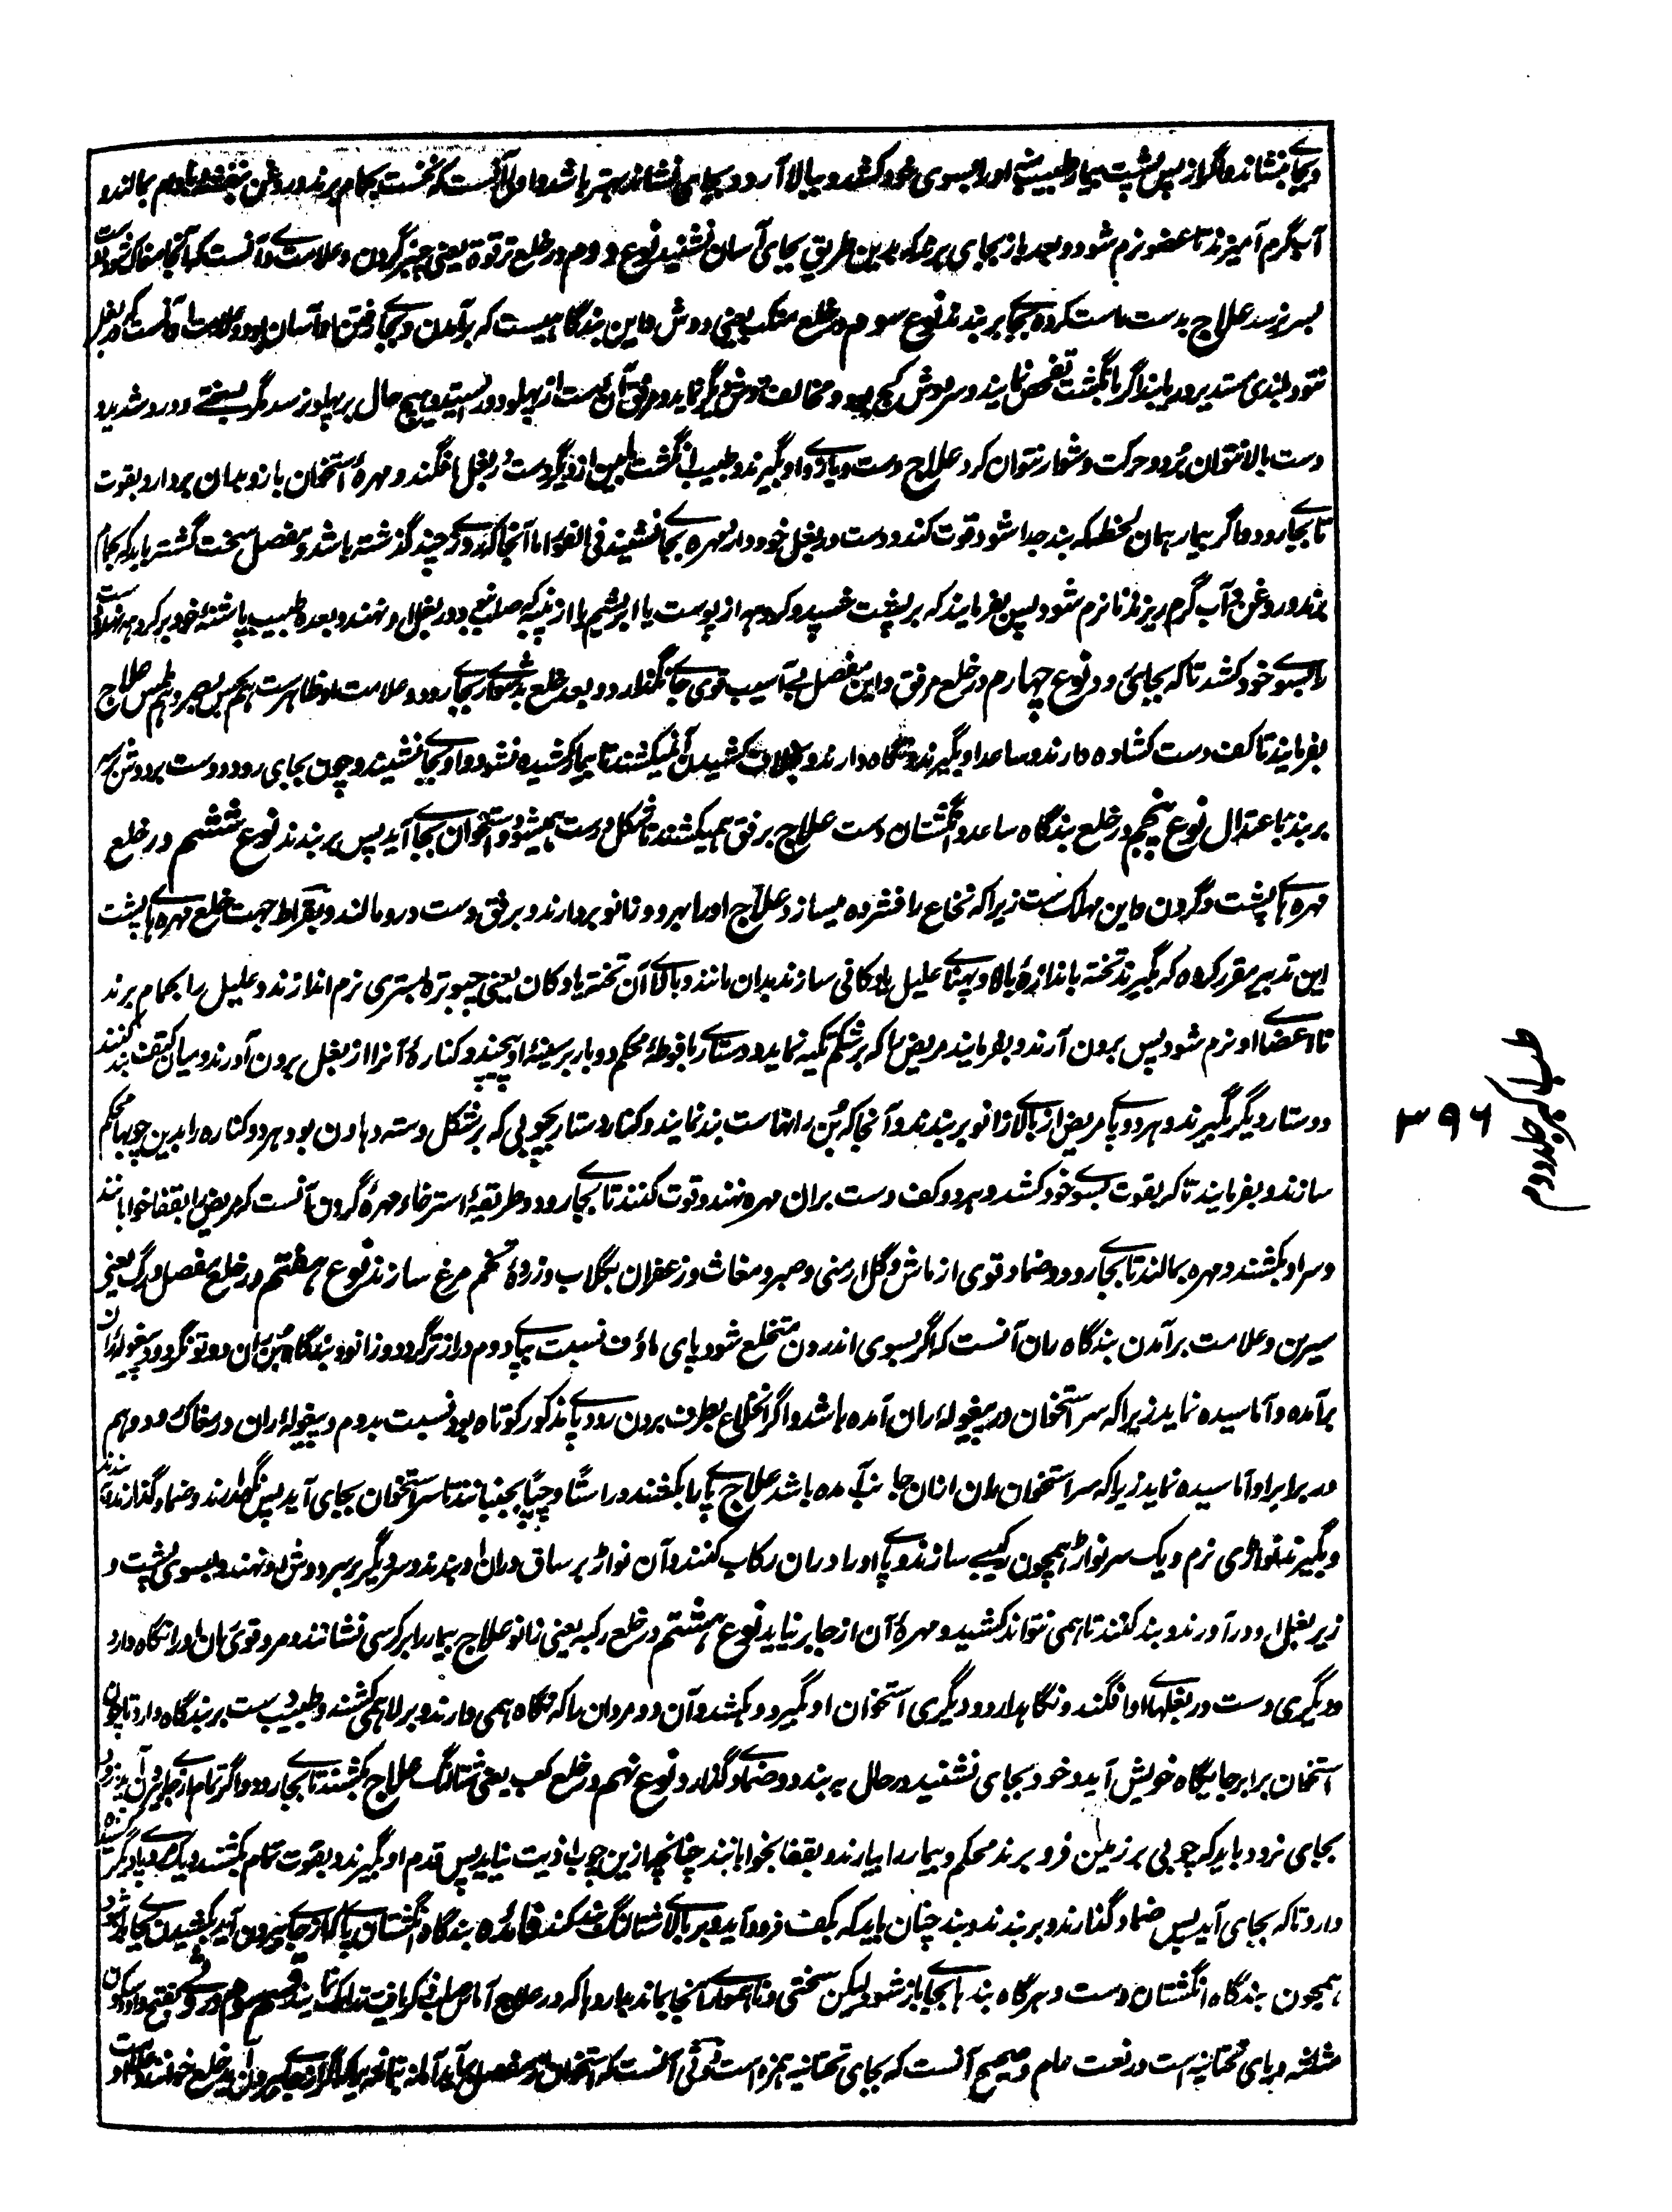 و بجای بنشاند و اگر از پس پشت بیمار طبیب او را بسوی خود کشد و ببالا آرد و بجای نشاند بهتر باشد و اولی آنست که نخست بحمام برند و روغن بنفشه بمالند و
آب گرم آمیزند تا عضو نرم شود و بعد باز بجای برند که بدین طریق بجای آسان نشیند نوع دوم در خلع ترقوة یعنی چنبر گردن و علامت آنست که آنجا مغاک شود و دست
بسر نرسد علاج بدست راست کرده بجا بربندند نوع سوم در خلع منکب یعنی دوش و این بندگاهیست که برآمدن و بجا رفتن او آسان بود و علامت او آنست که در بغل
نتود بلندی مستدیر دریابند اگر بانگشت تفحص نمایند و سر دوش کج بود و مخالف دوش دیگر نماید و مرفق آن دست از پهلو دور ایستد و هیچ حال بر پهلو نرسد مگر بسختی و درد شدید و
دست بالا نتوان برد و حرکت دشوار نتوان کرد علاج دست و بازو او بگیرند و طبیب انگشت از دیگر دست در بغل افگند و مهرهٔ استخوان بازو بدان بردارد بقوت
تا بجای رود و اگر بیمار همان لحظه که بند جدا شود قوت کند و دست در بغل خود دارد مهره بجای نشیند فی الفور اما آنجا که روزی چند گذشته باشد و مفصل سخت گشته باید که بحمام
برند و روغن و آب گرم ریزند تا نرم شود پس بفرمایند که بر پشت خسپد و کروهه از پوست یا ابریشم یا از پنبه صلب در بغل او نهند و بعده طبیب پاشنهٔ خود بر کروهه نهد و دست
را بسوی خود کشد تا که بجای رود نوع چهارم در خلع مرفق و این مفصل بی آسیب قوی جا نگذارد و بعد خلع بدشواری بجای رود و علامت او ظاهرست هم بحس بصر و هم بلمس علاج
بفرمایند تا کف دست کشاده دارند و ساعد او بگیرند و نگاه دارند و بخلاف کشیدن آن میکشند تا بیمار کشیده نشود و او بجا نشیند و چون بجای رود دست بر دوش
بربند باعتدال نوع پنجم در خلع بندگاه ساعد و انگشتان دست علاج برفق همیکشند تا شکل دست همیشود و استخوان بجا آید پس بربندند نوع ششم در خلع
مهره های پشت و گردن و این مهلک ست زیرا که نخاع را فشرده میسازد علاج او را بهر دو زانو بردارند و برفق دست درو مالند و بقراط جهت خلع مهره های پشت
این تدبیر مقرر کرده که بگیرند تخته باندازهٔ بالا و پهنای علیل یا دکانی سازند بدان مانند و بالای آن تخته یا دکان یعنی چبوتره بستری نرم اندازند و علیل را بحمام برند
تا اعضای او نرم شود پس برون آرند و بفرمایند مریض را که بر شکم تکیه نماید و دستار یا فوطهٔ محکم دو بار بر سینهٔ او پیچند و کنارهٔ آنرا از بغل برون آورند و میان کتف بند کنند
و دستار دیگر بگیرند و هر دو پای مریض از بالای زانو بربندند و آنجا که بن رانهاست بند نمایند و کنار دستار بچوبی که بر شکل دسته هاون بود و هر دو کناره را بدین چوبها محکم
سازند و بفرمایند تا که بقوت بسوی خود کشند و هر دو کف دست بران مهره نهند و قوت کنند تا بجای رود و طریقهٔ استرخاء مهرهٔ گردن آنست که مریض را بقفا خوابانند
و سر او بکشند و مهره بمالند تا بجای رود و ضماد قوی از ماش و گل ارمنی و صبر و مغاث و زعفران بگلاب و زردهٔ تخم مرغ سازند نوع هفتم در خلع مفصل ورک یعنی
سرین و علامت برآمدن بندگاه ران آنست که اگر بسوی اندرون منخلع شود پای ماؤف نسبت بپای دوم درازتر گردد و زانو و بندگاه بن ران دو تو نگردد و بیغولهٔ ران
برآمده و آماسیده نماید زیرا که سر استخوان در بیغولهٔ ران آمده باشد و اگر انخلاع بطرف برون رود پای مذکور کوتاه بود نسبت بدوم و بیغولهٔ ران در مغاک رود و هم
در برابر او آماسیده نماید زیرا که سر استخوان ران ازان جانب آمده باشد علاج پای را بکشند و راستا و چپا بجنبانند تا سر استخوان بجای آید پس نگهدارند و ضماد گذارند و بندند
و بگیرند نواری نرم و یک سر نوار همچون رکیب سازند و پای او را دران رکاب کنند و آن نواڑ بر ساق و ران او بندند و سر دیگر بر سر دوش او نهند و بسوی پشت و
زیر بغل او درآورند و بند کنند تا همی نتواند کشید و مهرهٔ آن از جا برنیاید نوع هشتم در خلع رکبه یعنی زانو علاج بیمار را بر کرسی نشانند و مرد قوی ران او را نگاه دارد
و دیگری دست در بغلهای او افگند و نگاهدارد و دیگری استخوان او گیرد و بکشد و آن دو مردان را که نگاه همی دارند و بر بالا همی کشند و طبیب دست بر بندگاه دارد تا چون
استخوان برابر جایگاه خویش آید و خود بجای نشیند در حال ببندد و ضماد گذارد نوع نهم در خلع کعب یعنی شتالنگ علاج بکشند تا بجای رود و اگر تمام از جا برون آید و زود
بجای نرود باید که چوبی بر زمین فرو برند محکم و بیمار را بیارند و بقفا بخوابانند چنانچه ازین چوب اذیت نیابد پس قدم او بگیرند و بقوت تمام بکشند و یک پا دیگر کشیده
دارد تا که بجای آید پس ضماد گذارند و بربندند و بند چنان باید که بکف فرود آید و بر بالای شتالنگ بند کنند فائده بندگاه انگشتان پا که از جا بیرون آید بکشیدن بجا رود
همچون بندگاه انگشتان دست و هرگاه بند بجای باز شود لیکن سختی و ناهمواری آنجا بماند بداروها که در علاج آماس صلب ذکر یافت تدارک نمایند قسم سوم در وثی بفتح واو و سکون
مثلثه و یای تحتانیه است در نعت عام و صحیح آنست که بجای تحتانیه همزه است وثی آنست که استخوان از مفصل برآید اما نه بتمامه
۳۹۶